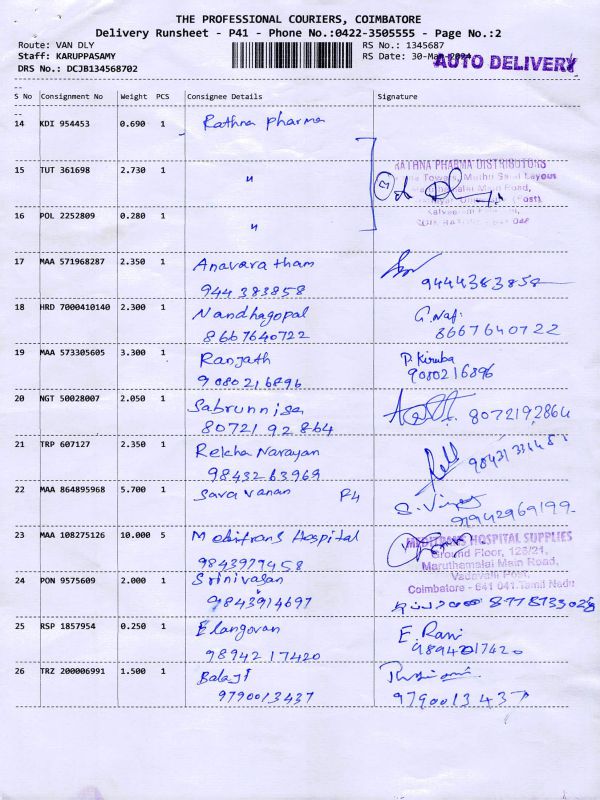 THE PROFESSIONAL COURIERS, COIMBATORE
Delivery Runsheet - P41 - Phone No.:0422-3505555 - Page No.:2
Route: VAN DLY RS No.: 1345687
Staff: KARUPPASAMY RS Date: 30-Mar-2024
AUTO DELIVERY
DRS No.: DCJB134568702
S No Consignment No Weight PCS Consignee Details Signature
14 KDI 954453 0.690 1 Rathna Pharma
15 TUT 361698 2.730 1 "
RATHNA PHARMA DISTRIBUTORS
Towers, Muthu Layout
Main Road,
(Post)
16 POL 2252809 0.280 1 "
17 MAA 571968287 2.350 1 Anavaratham
944 383858 9444383858
18 HRD 7000410140 2.300 1 Nandhagopal G.Naf
8667640722 8667640722
19 MAA 573305605 3.300 1 Ranjath P. Kiruba
9080216896 9080216896
20 NGT 50028007 2.050 1 Sabrunnisa
8072192864 8072192864
21 TRP 607127 2.350 1 Rekha Narayan
9843263969
22 MAA 864895968 5.700 1 Saravanan P4
9942969199
23 MAA 108275126 10.000 5 Meditrans Hospital
9843977458
MEDITRANS HOSPITAL SUPPLIES
Ground Floor, 128/21,
Maruthamalai Main Road,
Vadavalli Post,
Coimbatore - 641 041. Tamil Nadu
24 PON 9575609 2.000 1 Srinivasan
9843914697
25 RSP 1857954 0.250 1 Elangovan E. Rani
9894217420 9894217420
26 TRZ 200006991 1.500 1 Balaji
9790013437 9790013437